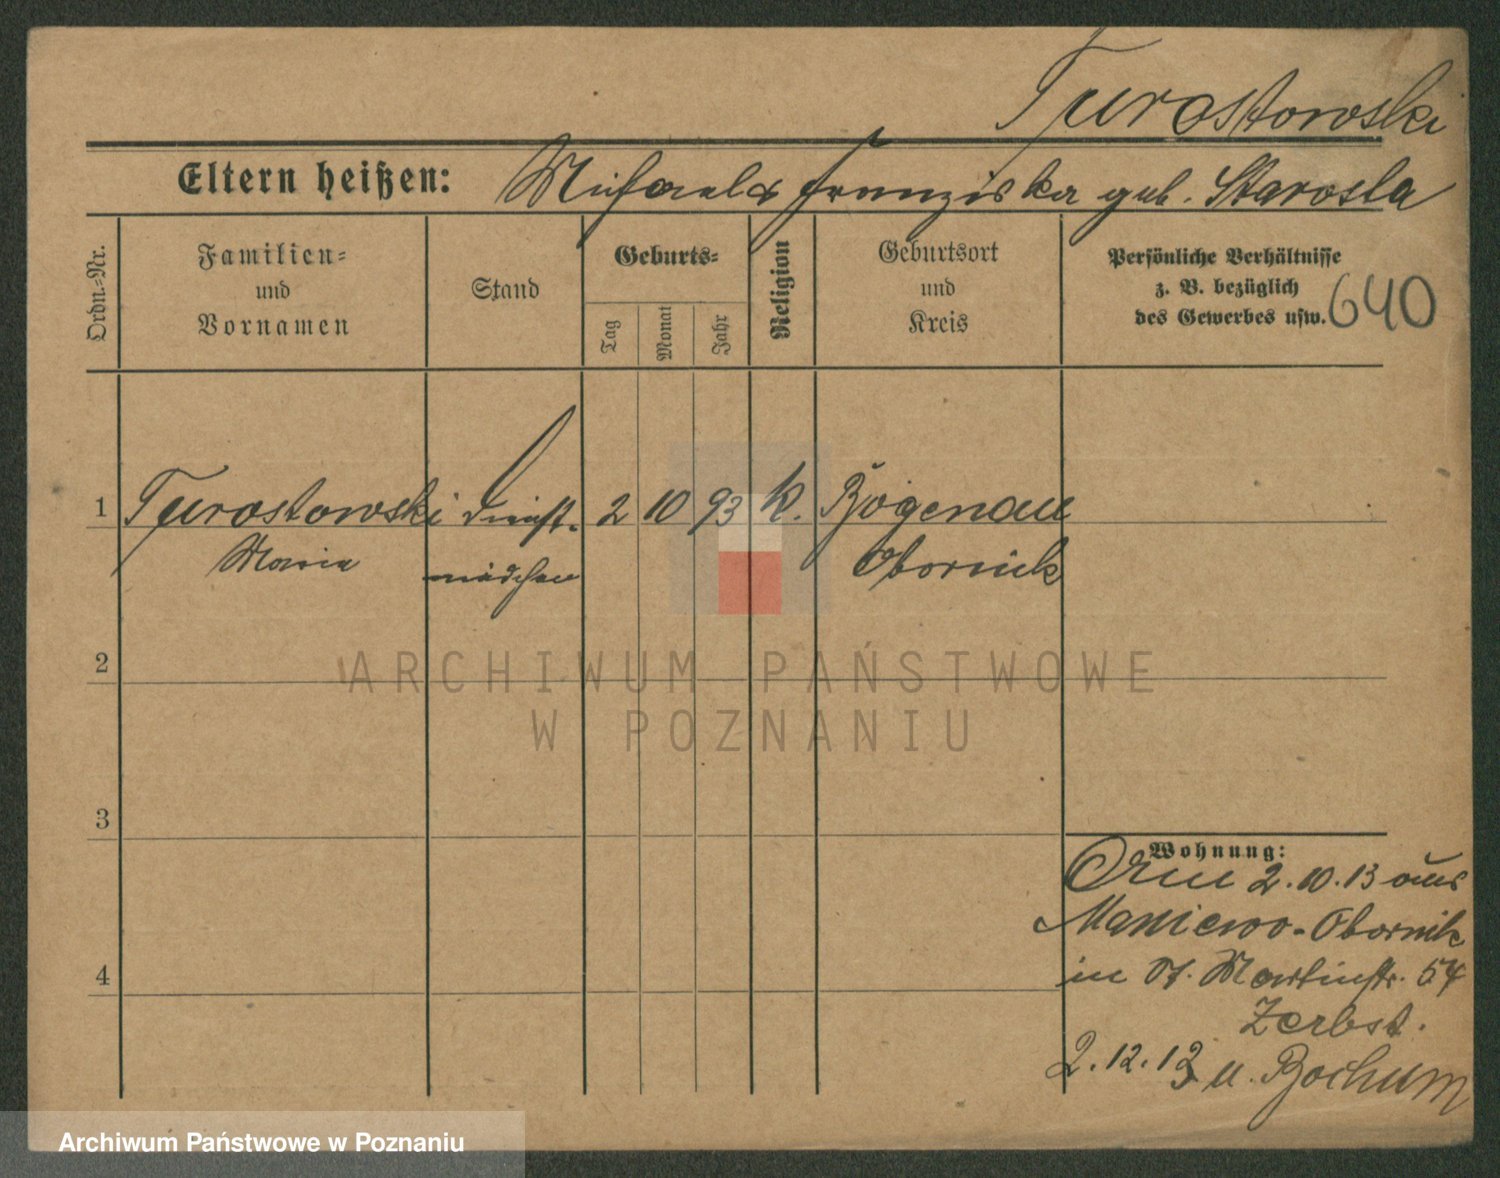 Turostowski
Eltern heißen: Michael & Franziska geb. Starosta
Ordn.-Nr.
Familien- und Vornamen
Stand
Geburts-
Tag
Monat
Jahr
Religion
Geburtsort und Kreis
Persönliche Verhältnisse
z. B. bezüglich
des Gewerbes usw. 640
1 Turostowski Dienst- 2 10 93 k. Bogenau
Maria mädchen Obornik
2
3
4
Wohnung:
Am 2.10.13 aus
Maniewo-Obornik
in St. Martinstr. 54
Zerbst.
2.12.13 n. Bochum
ARCHIWUM PAŃSTWOWE
W POZNANIU
Archiwum Państwowe w Poznaniu